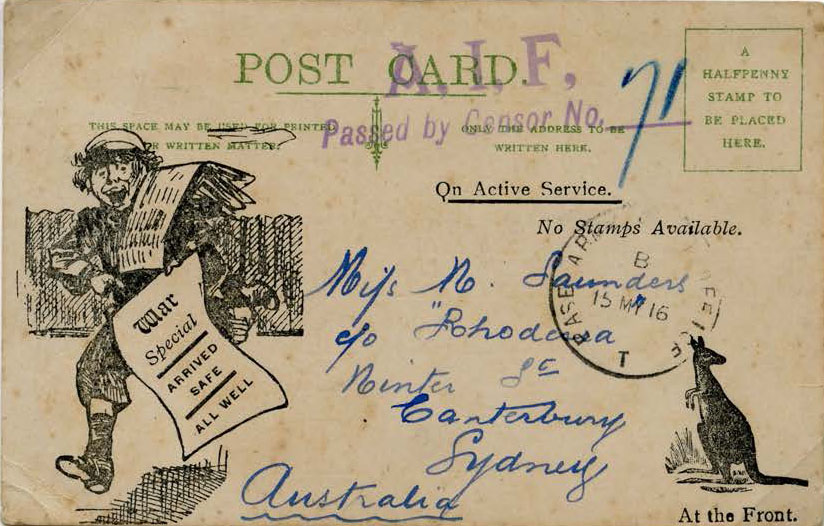 POST CARD.
A. I. F.
Passed by Censor No. 71
THIS SPACE MAY BE USED FOR PRINTED
OR WRITTEN MATTER.
ONLY THE ADDRESS TO BE
WRITTEN HERE.
A
HALFPENNY
STAMP TO
BE PLACED
HERE.
On Active Service.
No Stamps Available.
BASE ARMY OFFICE
B
15 MY 16
T
War
Special
ARRIVED
SAFE
ALL WELL
Miss N. Saunders
c/o "Rhodesia
St
Canterbury
Sydney
Australia
At the Front.